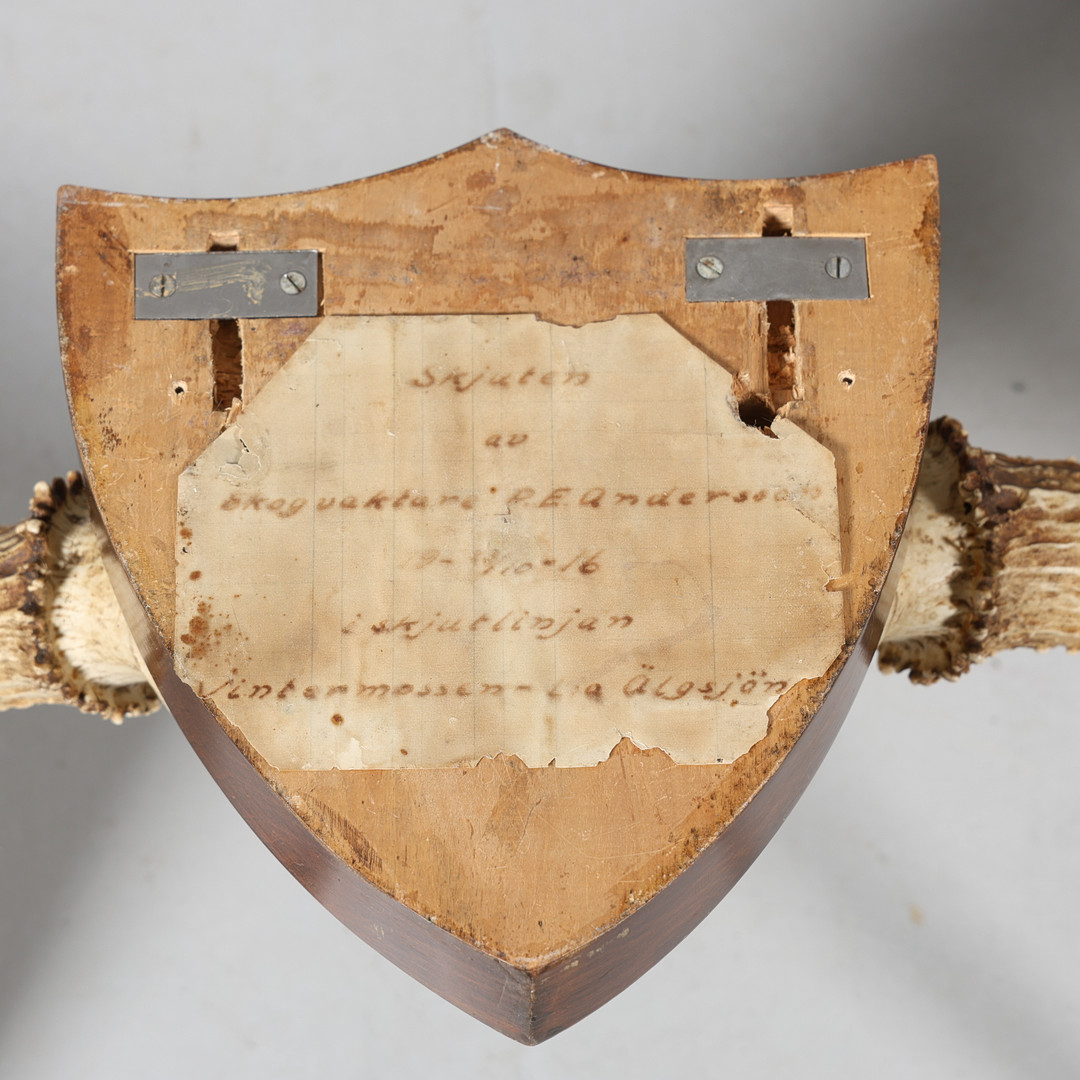 Skjuten
av
skogvaktare P.E. Andersson
i skjutlinjan
Vintermossen - Älgsjön